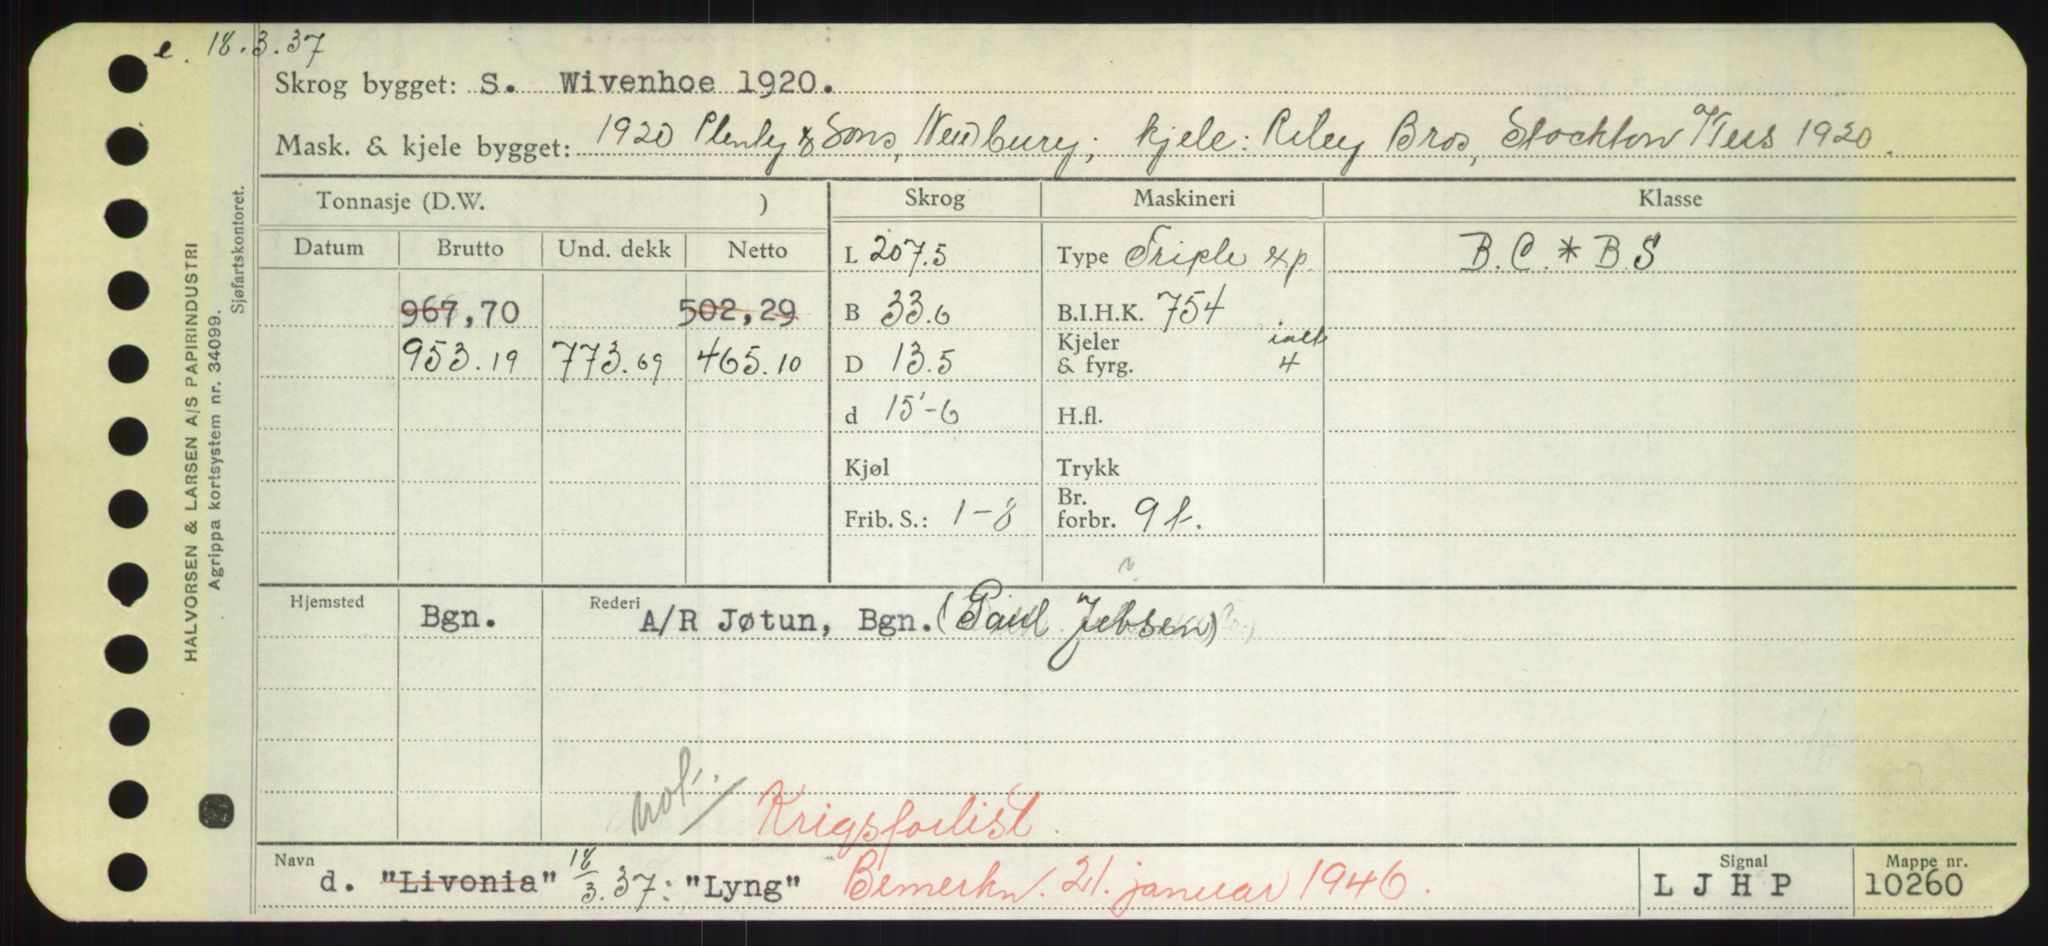 e. 18.3.37
Skrog bygget: S. Wivenhoe 1920.
Mask. & kjele bygget: 1920 Plenty & Sons, Newbury; kjele: Riley Bros, Stockton Tees 1920.
Tonnasje (D.W. ) Skrog Maskineri Klasse
Datum Brutto Und. dekk Netto L 207.5 Type Triple exp. B.C.* B.S
967,70 502,29 B 33.6 B.I.H.K. 754
953.19 773.69 465.10 D 13.5 Kjeler & fyrg. ialt 4
d 15'-6 H.fl.
Kjøl Trykk
Frib. S.: 1-8 Br. forbr. 9 t.
Hjemsted Bgn. Rederi A/R Jøtun, Bgn. (Paul Jebsen)
not.
Krigsforlist.
Navn d. "Livonia" 18/3.37: "Lyng" Bemerkn. 21. januar 1946.
Signal LJHP
Mappe nr. 10260
HALVORSEN & LARSEN A/S PAPIRINDUSTRI
Agrippa kortsystem nr. 34099.
Sjøfartskontoret.